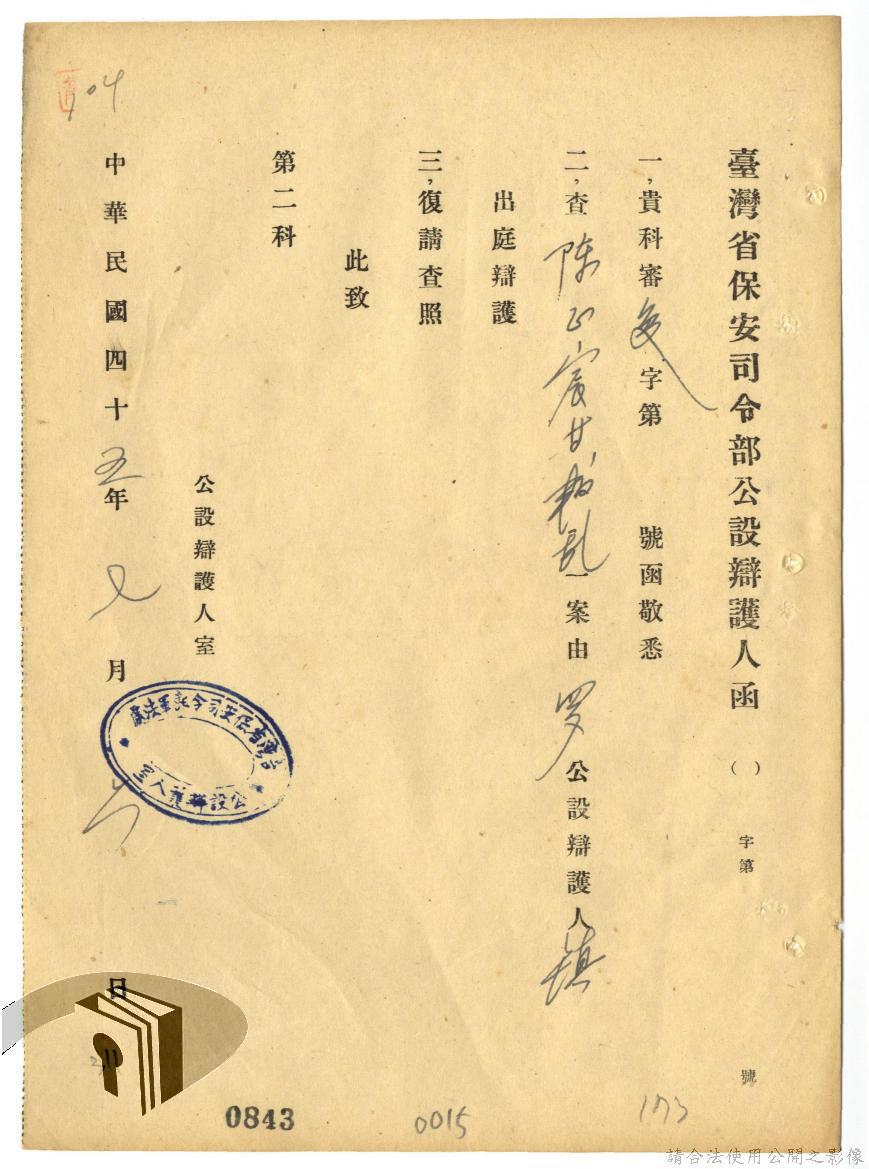 臺灣省保安司令部公設辯護人函（ ）字第 號
一，貴科審 字第 號函敬悉
二，查陳正宸等叛乱一案由罗公設辯護人鎮
出庭辯護
三，復請查照
此致
第二科
公設辯護人室
臺灣省保安司令部軍法處
公設辯護人室
中華民國四十五年七月 日
104
0843
0015
173
請合法使用公開之影像